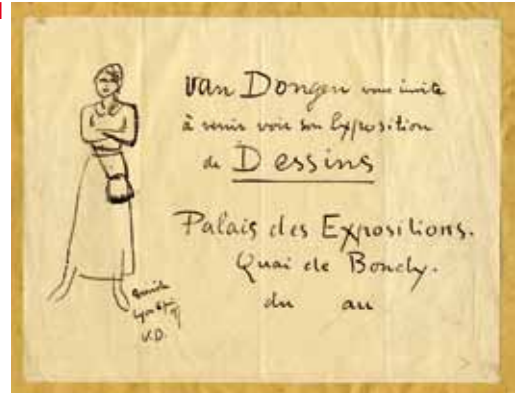 van Dongen vous invite
à venir voir son Exposition
de Dessins
Palais des Expositions.
Quai de Bondy.
du au
V.D.